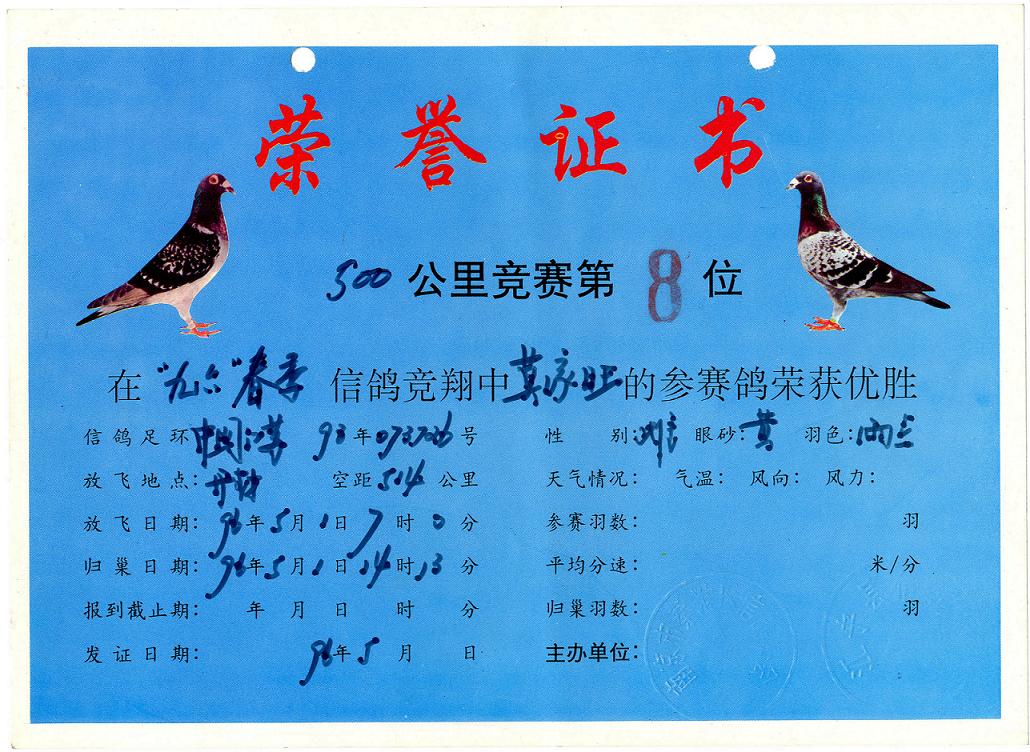 荣誉证书
500公里竞赛第8位
在"九六"春季信鸽竞翔中莫家旺的参赛鸽荣获优胜
信鸽足环中国江苏93年073726号 性别:雄 眼砂:黄 羽色:雨点
放飞地点:开封 空距514公里 天气情况: 气温: 风向: 风力:
放飞日期:96年5月1日7时0分 参赛羽数: 羽
归巢日期:96年5月1日14时13分 平均分速: 米/分
报到截止期: 年 月 日 时 分 归巢羽数: 羽
发证日期:96年5月 日 主办单位: